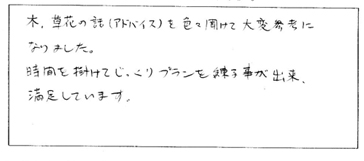 木、草花の話(アドバイス)を色々聞けて大変参考に
なりました。
時間を掛けてじっくりプランを練る事が出来、
満足しています。